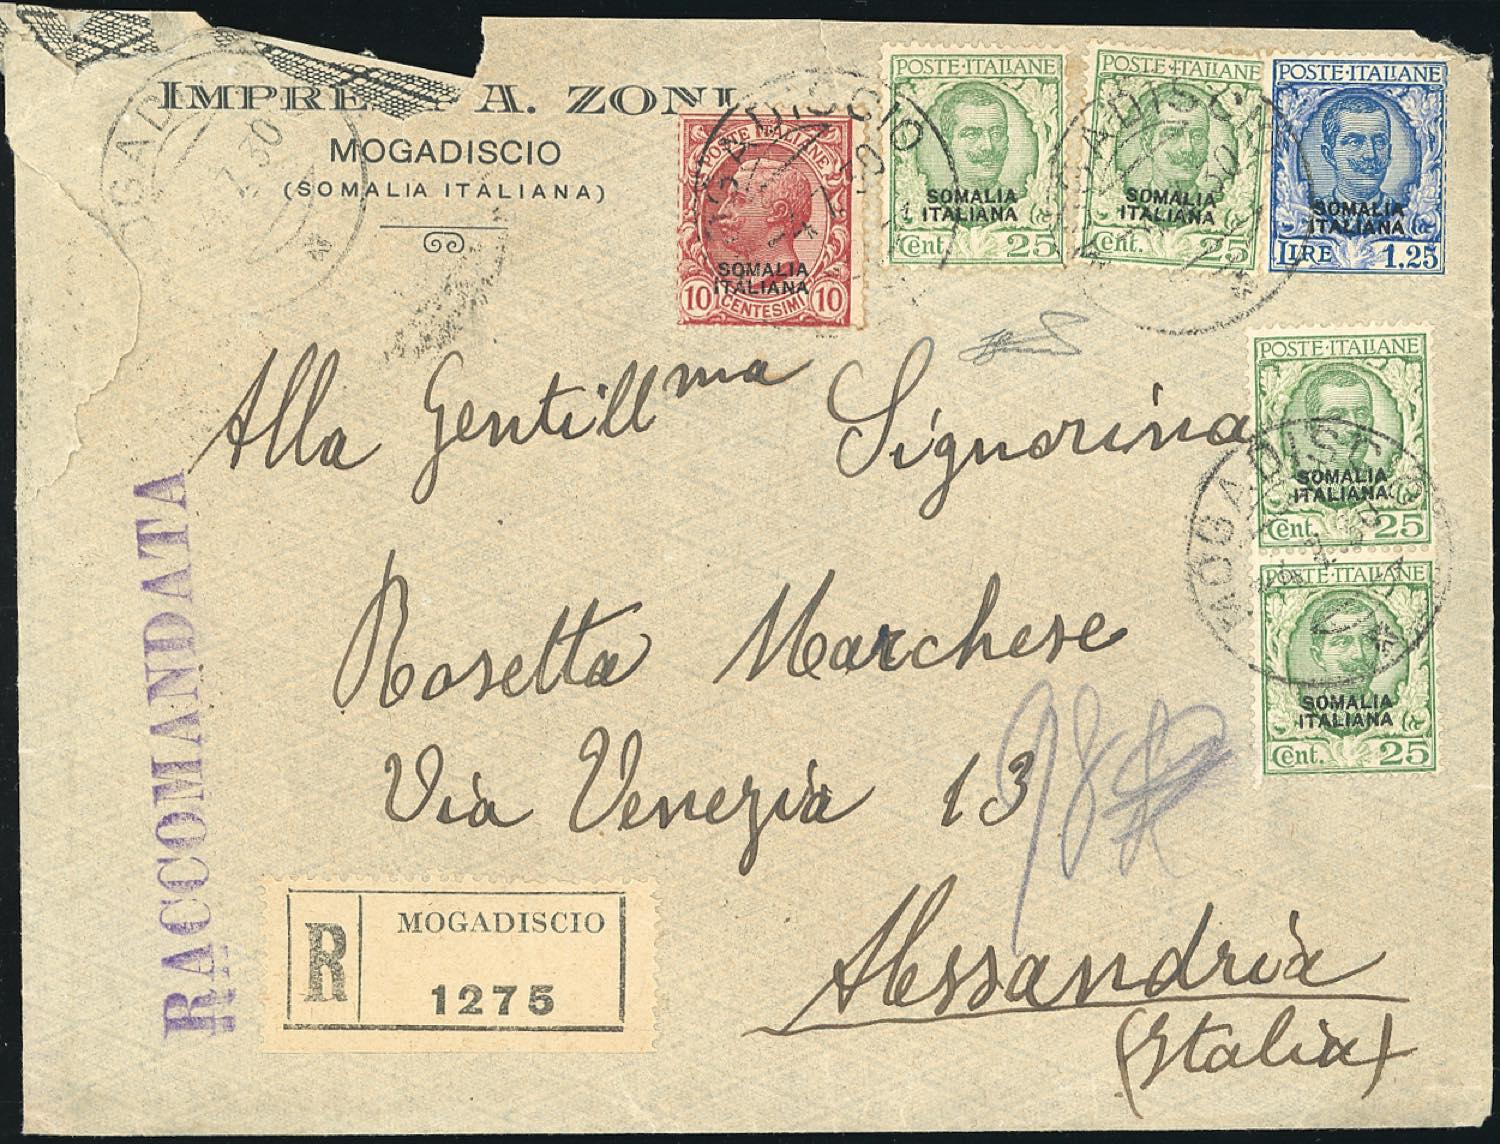 A. ZONI
MOGADISCIO
(SOMALIA ITALIANA)
POSTE ITALIANE
SOMALIA
ITALIANA
10 CENTESIMI 10
POSTE·ITALIANE
SOMALIA
ITALIANA
Cent. 25
POSTE·ITALIANE
SOMALIA
ITALIANA
Cent. 25
POSTE·ITALIANE
SOMALIA
ITALIANA
LIRE 1.25
POSTE·ITALIANE
SOMALIA
ITALIANA
Cent. 25
POSTE·ITALIANE
SOMALIA
ITALIANA
Cent. 25
MOGADISCIO
Alla Gentill ma Signorina
Rosetta Marchese
Via Venezia 13
Alessandria
(Italia)
RACCOMANDATA
R MOGADISCIO
1275